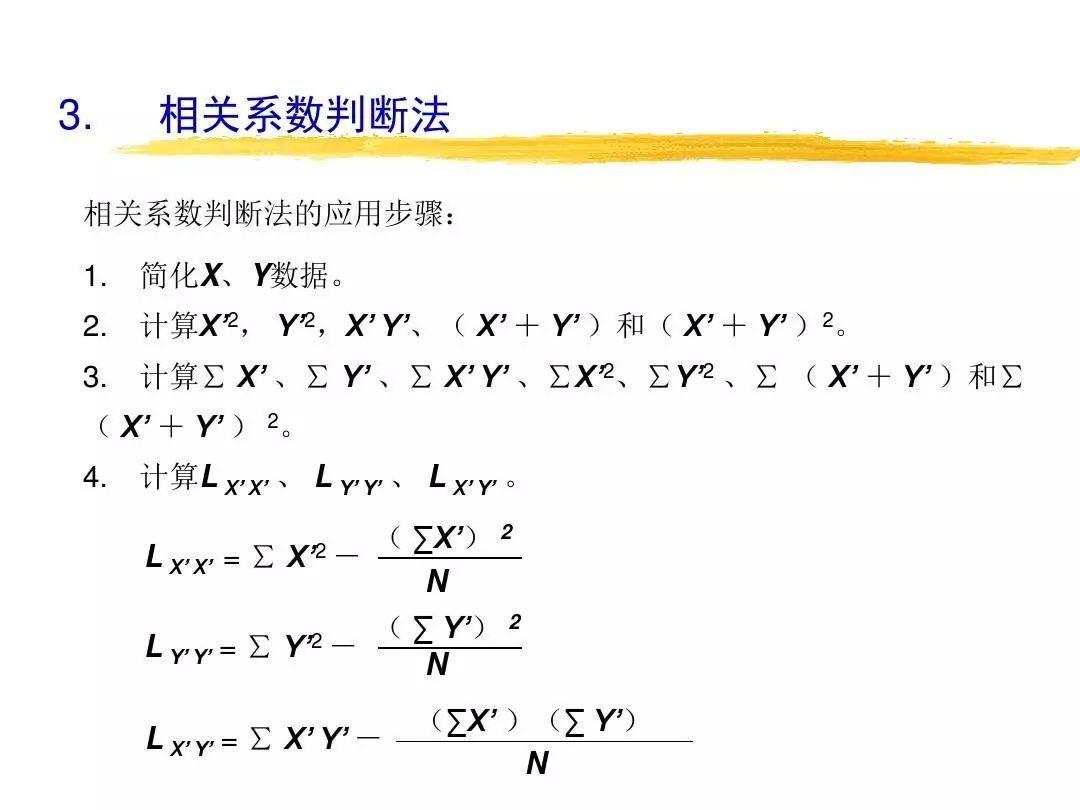 3. 相关系数判断法
相关系数判断法的应用步骤：
1. 简化X、Y数据。
2. 计算X’²， Y’²，X’ Y’、（ X’＋ Y’ ）和（ X’＋ Y’ ）²。
3. 计算∑ X’ 、∑ Y’ 、∑ X’ Y’ 、∑X’²、∑Y’² 、∑ （ X’＋ Y’ ）和∑
（ X’＋ Y’ ） ²。
4. 计算L X’X’ 、 L Y’Y’ 、 L X’Y’ 。
L X’X’ = ∑ X’² － （ ∑X’） ²
N
L Y’Y’ = ∑ Y’² － （ ∑ Y’） ²
N
L X’Y’ = ∑ X’ Y’－ （∑X’ ）（∑ Y’）
N